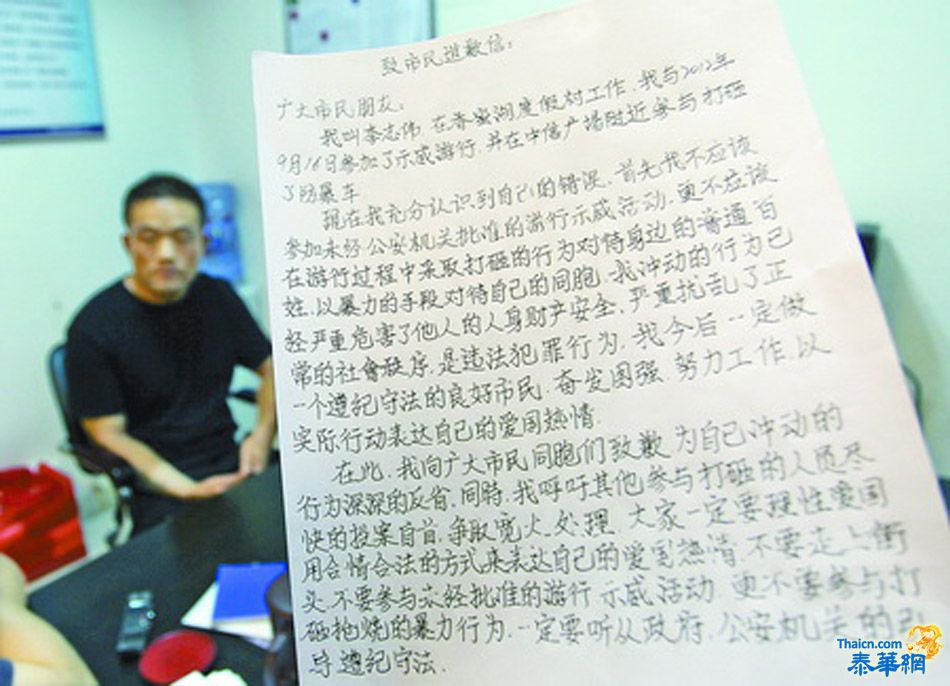 致市民道歉信:
广大市民朋友:
我叫李志伟,在香蜜湖度假村工作,我与2012年
9月16日参加了示威游行,并在中信广场附近参与打砸
了防暴车
现在我充分认识到自己的错误,首先我不应该
参加未经公安机关批准的游行示威活动,更不应该
在游行过程中采取打砸的行为对待身边的普通百
姓,以暴力的手段对待自己的同胞,我冲动的行为已
经严重危害了他人的人身财产安全,严重扰乱了正
常的社會秩序,是违法犯罪行为,我今后一定做
一个遵纪守法的良好市民,奋发图强,努力工作,以
实际行动表达自己的爱国热情.
在此,我向广大市民同胞们致歉,为自己冲动的
行为深深的反省,同時,我呼吁其他参与打砸的人员尽
快的投案自首,争取宽大处理,大家一定要理性爱国
用合情合法的方式来表达自己的爱国热情,不要走上街
头,不要参与未经批准的游行示威活动,更不要参与打
砸抢烧的暴力行为,一定要听从政府,公安机关的引
导遵纪守法.
Thaicn.com
泰華網